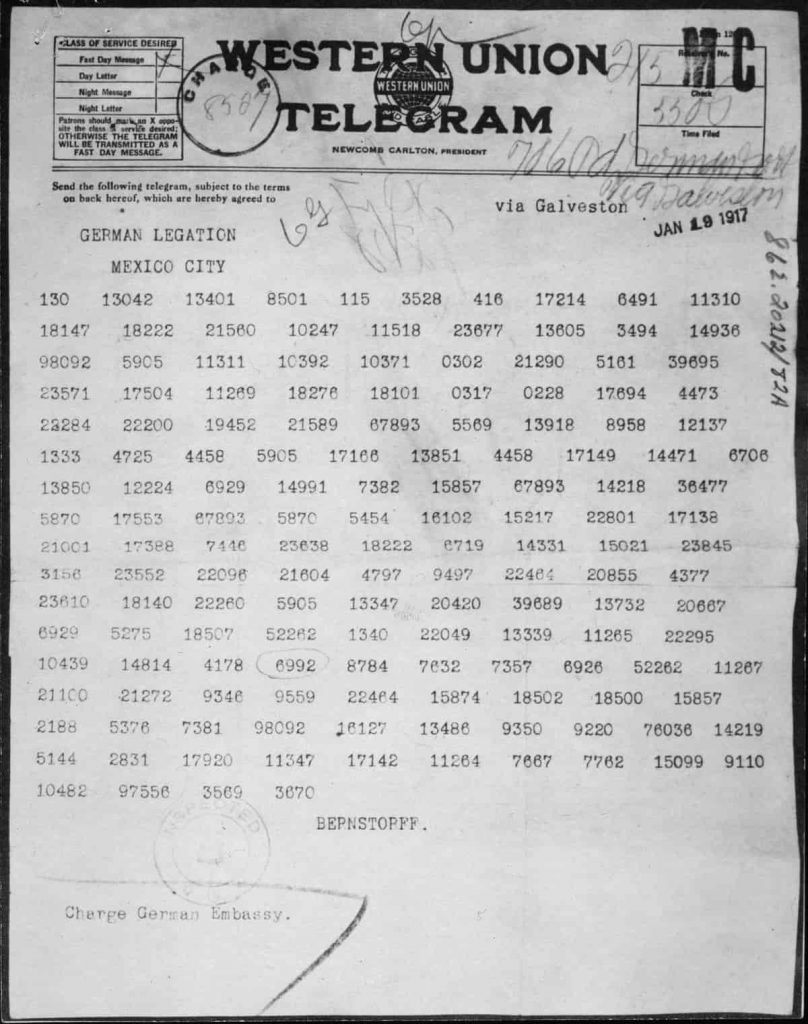 CLASS OF SERVICE DESIRED
Fast Day Message
Day Letter
Night Message
Night Letter
Patrons should mark an X oppo-
site the class of service desired;
OTHERWISE THE TELEGRAM
WILL BE TRANSMITTED AS A
FAST DAY MESSAGE.
CHARGE
WESTERN UNION
WESTERN UNION
TELEGRAM
NEWCOMB CARLTON, PRESIDENT
MC
Check
Time Filed
Send the following telegram, subject to the terms
on back hereof, which are hereby agreed to
via Galveston
JAN 19 1917
GERMAN LEGATION
MEXICO CITY
130 13042 13401 8501 115 3528 416 17214 6491 11310
18147 18222 21560 10247 11518 23677 13605 3494 14936
98092 5905 11311 10392 10371 0302 21290 5161 39695
23571 17504 11269 18276 18101 0317 0228 17694 4473
22284 22200 19452 21589 67893 5569 13918 8958 12137
1333 4725 4458 5905 17166 13851 4458 17149 14471 6706
13850 12224 6929 14991 7382 15857 67893 14218 36477
5870 17553 67893 5870 5454 16102 15217 22801 17138
21001 17388 7446 23638 18222 6719 14331 15021 23845
3156 23552 22096 21604 4797 9497 22464 20855 4377
23610 18140 22260 5905 13347 20420 39689 13732 20667
6929 5275 18507 52262 1340 22049 13339 11265 22295
10439 14814 4178 6992 8784 7632 7357 6926 52262 11267
21100 21272 9346 9559 22464 15874 18502 18500 15857
2188 5376 7381 98092 16127 13486 9350 9220 76036 14219
5144 2831 17920 11347 17142 11264 7667 7762 15099 9110
10482 97556 3569 3670
BERNSTORFF.
Charge German Embassy.
862.20212/82A